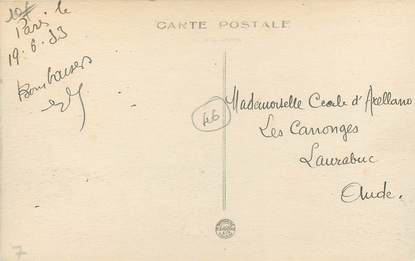 CARTE POSTALE
Paris le
19.6.33
Bons baisers
46
Mademoiselle Cecile d'Arellano
Les Canonges
Laurabuc
Aude.
7